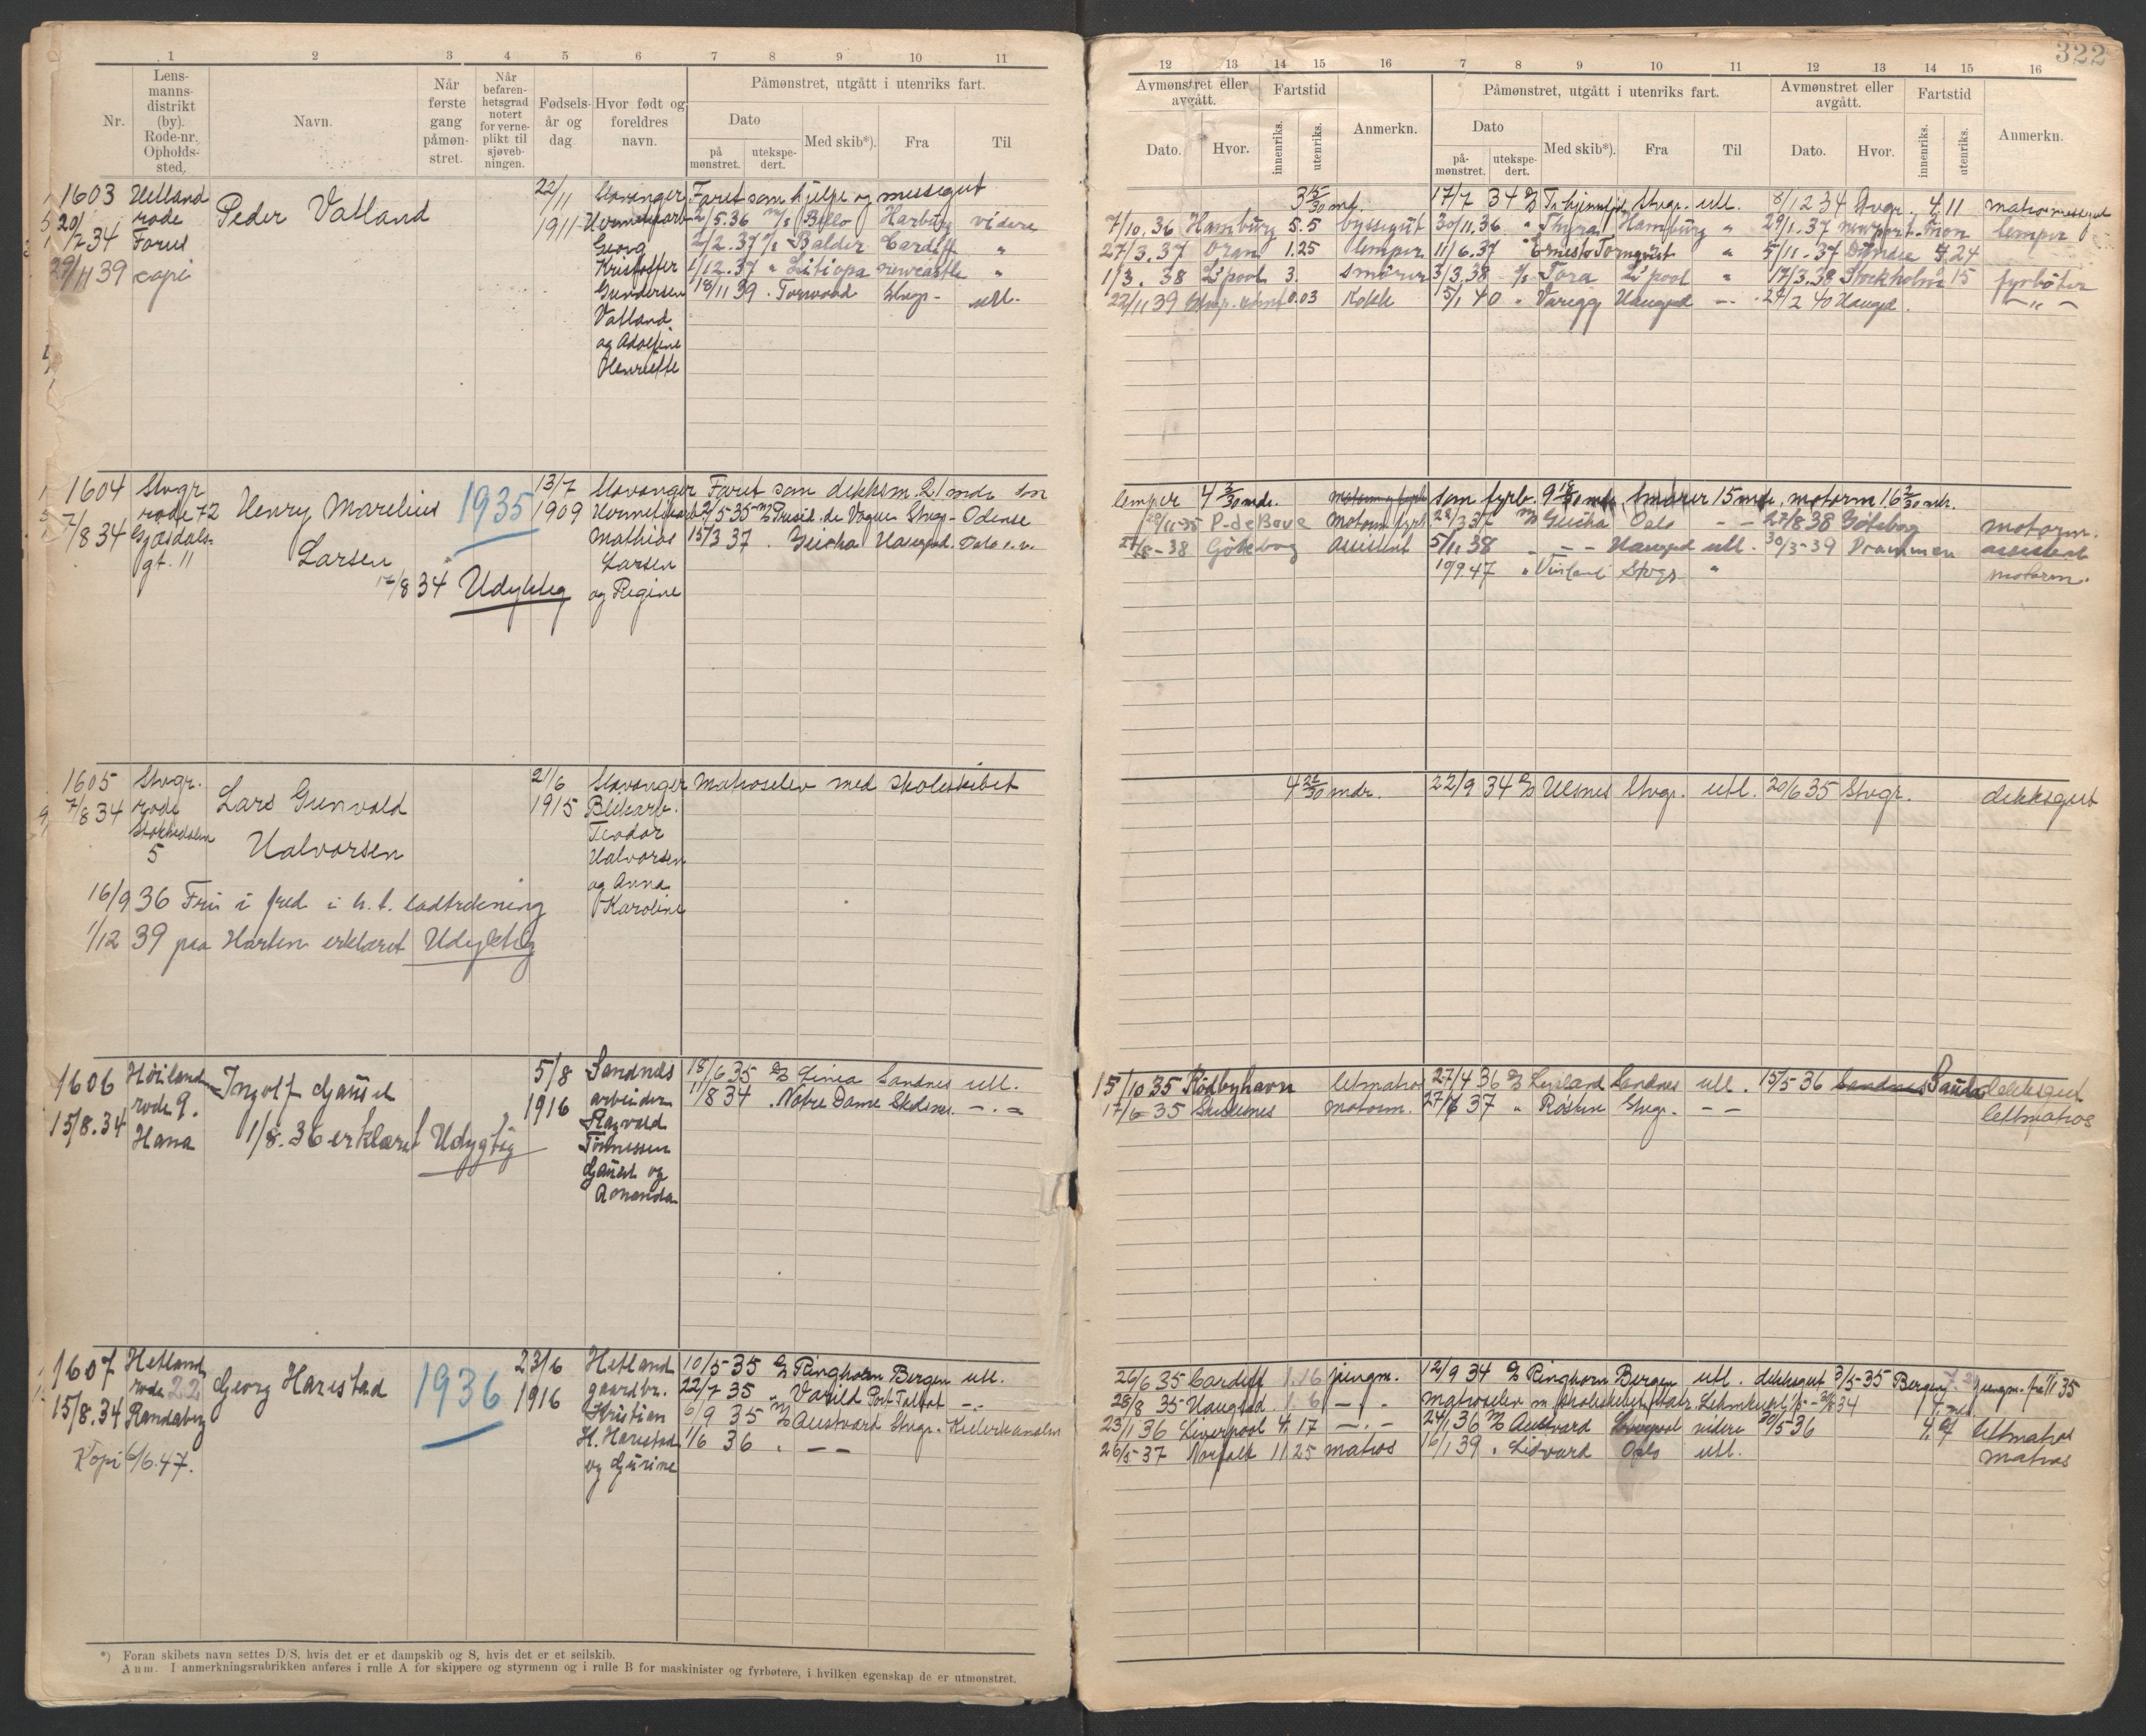 322
1 2 3 4 5 6 7 8 9 10 11
Nr.
Lens-
manns-
distrikt
(by).
Rode-nr.
Opholds-
sted.
Navn.
Når
første
gang
påmøn-
stret.
Når
befaren-
hetsgrad
notert
for verne-
plikt til
sjøveb-
ningen.
Fødsels-
år og
dag.
Hvor født og
foreldres
navn.
Påmønstret, utgått i utenriks fart.
Dato
på
mønstret.
utekspe-
dert.
Med skib*).
Fra
Til
12 13 14 15 16 7 8 9 10 11 12 13 14 15 16
Avmønstret eller
avgått.
Dato.
Hvor.
Fartstid
innenriks.
utenriks.
Anmerkn.
Påmønstret, utgått i utenriks fart.
Dato
på-
mønstret.
utekspe-
dert.
Med skib*).
Fra
Til
Avmønstret eller
avgått.
Dato.
Hvor.
Fartstid
innenriks.
utenriks.
Anmerkn.
1603 Hetland
rode
20/7 34 Forus
29/11 39 copi
Peder Vatland
22/11
1911
Stavanger
Georg
Kristoffer
Gundersen
Vatland
og Adolfine
Henriette
Faret som hjelp og messegut
2/5.36 Bello Harburg videre
2/2.37 Balder Cardiff "
1/12.37 " newcastle "
18/11 39 . Torwood Stvgr - utl.
3 5/30 md. 17/7 34 Stvgr. utl. 8/12 34 Stvgr. 4 11
7/10.36 Hamburg 5.5 byssegut 30/11.36 " Thyra Hamburg " 29/1.37 newport. mon lemper
27/3.37 Oran 1.25 lemper 11/6.37 " Ernesto Tornquist " 5/11-37 5.24
1/3.38 L'pool 3. smører 3/3.38 Tora L'pool " 17/3.38 Stockholm 15 fyrbøter
22/11 39 0.03 Kokk 5/1 40 " Varegg Haugsd - . 27/2 40 Haugsd. -"-
1604 Stvgr
rode 72
7/8 34 Gjesdals-
gt. 11
Henry Marelius
Larsen
1935
17/8 34 Udyktig
13/7
1909
Stavanger
Hermetikarb
Mathias
Larsen
og Regine
Faret som dekksm. 21 mdr som
2/5-35 Presid. de Vogue Stvgr - Odense
15/3 37 . Geisha Haugsd. Oslo
lemper 4 3/30 mdr. som fyrb. 9 18/30 mdr. smører 15 mdr, motorm 16 3/30 mdr.
P-de Bouc motorm fyrb. 22/3 37 Geisha Oslo - - 27/8 38 Göteborg motorm.
27/8-38 Göteborg assistent 5/11 38 " - - Haugsd utl. 30/3-39 Drammen assistent
10/9.47 " Stvgr " motorm.
1605 Stvgr.
7/8 34 rode
Stokkadalen
5
Lars Gunvald
Halvorsen
21/6
1915
Stavanger
Blikarb.
Teodor
Halvorsen
og Anna
Karoline
Matroselev med skoleskibet
16/9 36 Fri i fred i h.t. lodtrekning
1/12 39 paa Harten erklæret Udyktig
4 22/30 mdr. 22/9 34 Ulsnes Stvgr. utl. 20/6 35 Stvgr. dekksgut
1606 Høiland
rode 9.
15/8.34 Hana
Ingolf Gausel
1/8.36 erklæret Udygtig
5/8
1916
Sandnes
arbeider
Ragvald
Tønnessen
Gausel og
Amanda
18/6 35 Linea Sandnes utl.
11/8 34 . Notre Dame Skdsnes. -.-
15/10 35 Rødbyhavn letmatros 27/4 36 Lysland Sandnes utl. 15/5 36 Sandnes Sauda dekksgut
17/6-35 Skudesnes motorm. 27/6 37 " Røsten Stvgr. - - lettmatros
1607 Hetland
rode 22
15/8.34 Randaberg
Kopi 6/6.47.
Georg Harestad
1936
23/6
1916
Hetland
gaardbr.
Kristian
H. Harestad
og Gurine
10/5-35 Ringhorn Bergen utl.
22/7 35 " Varild Port Talbot -.-
6/9 35 Austvard Stvgr. Kielerkanalen
1/6 36 " - -
26/6 35 Cardiff 1.16 jungm. 12/9 34 Ringhorn Bergen utl. dekksgut 3/5-35 Bergen 7.2 jungm. fra 1/1 35
28/8 35 Haugsd. 1.6 - . matroselev m. skoleskibet Statsr. Lehmkuhl 4 md
23/1 36 Liverpool 4.17 -.- 24/1 36 Austvard Liverpool videre 30/5-36 4.7 letmatros
26/5-37 Norfolk 11 25 matros 16/1 39 " Lidvard Oslo utl. matros
*) Foran skibets navn settes D/S, hvis det er et dampskib og S, hvis det er et seilskib.
Anm. I anmerkningsrubrikken anføres i rulle A for skippere og styrmenn og i rulle B for maskinister og fyrbøtere, i hvilken egenskap de er utmønstret.